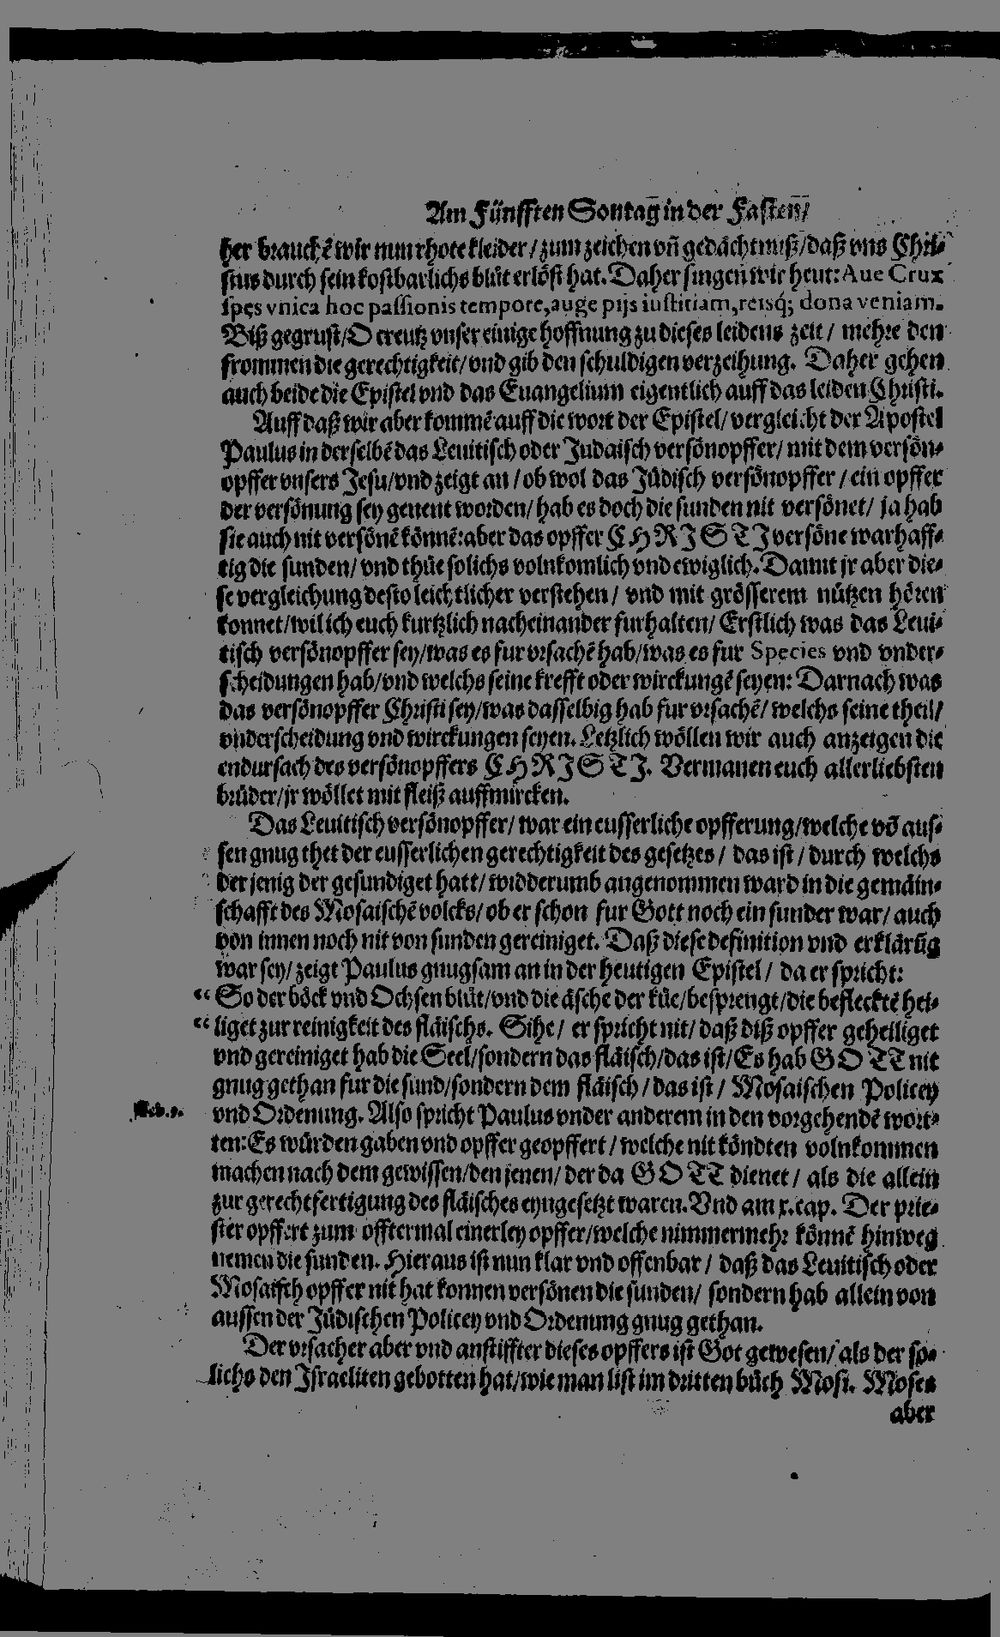 Am Fünfften Sontag in der Fasten/
her brauchē wir nun rhote kleider / zum zeichen vñ gedächtnuß/daß vns Chri-
stus durch sein kostbarlichs blüt erlöst hat. Daher singen wir heut: Aue Crux
spes vnica hoc passionis tempore, auge pijs iustitiam, reisq́; dona veniam.
Biß gegrust/O creutz vnser einige hoffnung zu dieses leidens zeit / mehre den
frommen die gerechtigkeit/vnd gib den schuldigen verzeihung. Daher gehen
auch beide die Epistel vnd das Euangelium eigentlich auff das leiden Christi.
Auff daß wir aber kommē auff die wort der Epistel/ vergleicht der Apostel
Paulus in derselbē das Leuitisch oder Judaisch versönopffer/ mit dem versön-
opffer vnsers Jesu/vnd zeigt an / ob wol das Jüdisch versönopffer / ein opffer
der versönung sey genent worden/ hab es doch die sunden nit versönet/ ja hab
sie auch nit versönē könnē: aber das opffer CHRISTI versöne warhaff-
tig die sunden/ vnd thüe solichs volnkomlich vnd ewiglich. Damit jr aber die-
se vergleichung desto leichtlicher verstehen / vnd mit grösserem nützen hören
konnet/wil ich euch kurtzlich nacheinander furhalten/ Erstlich was das Leui-
tisch versönopffer sey/was es fur vrsachē hab/was es fur Species vnd vnder-
scheidungen hab/vnd welchs seine krefft oder wirckungē seyen: Darnach was
das versönopffer Christi sey/was dasselbig hab fur vrsachē/ welchs seine theil/
vnderscheidung vnd wirckungen seyen. Letzlich wöllen wir auch anzeigen die
endursach des versönopffers CHRISTI. Vermanen euch allerliebsten
brüder/jr wöllet mit fleiß auffmircken.
Das Leuitisch versönopffer/ war ein eusserliche opfferung/welche vō aus-
sen gnug thet der eusserlichen gerechtigkeit des gesetzes / das ist / durch welchs
der jenig der gesundiget hatt/ widderumb angenommen ward in die gemäin-
schafft des Mosaischē volcks/ ob er schon fur Gott noch ein sunder war/ auch
von innen noch nit von sunden gereiniget. Daß diese definition vnd erklärūg
war sey/ zeigt Paulus gnugsam an in der heutigen Epistel / da er spricht:
“ So der böck vnd Ochsen blüt/vnd die äsche der küe/besprengt/die befleckte hei-
“ liget zur reinigkeit des fläischs. Sihe / er spricht nit/ daß diß opffer geheiliget
vnd gereiniget hab die Seel/sondern das fläisch/das ist/Es hab GOTT nit
gnug gethan fur die sund/sondern dem fläisch / das ist / Mosaischen Policey
Heb. 9. vnd Ordenung. Also spricht Paulus vnder anderem in den vorgehendē wor-
ten: Es würden gaben vnd opffer geopffert / welche nit köndten volnkommen
machen nach dem gewissen/den jenen/ der da GOTT dienet / als die allein
zur gerechtfertigung des fläisches eyngesetzt waren. Vnd am x. cap. Der prie-
ster opffert zum offtermal einerley opffer/welche nimmermehr könnē hinweg
nemen die sunden. Hieraus ist nun klar vnd offenbar / daß das Leuitisch oder
Mosaisch opffer nit hat konnen versönen die sunden/ sondern hab allein von
aussen der Jüdischen Policey vnd Ordenung gnug gethan.
Der vrsacher aber vnd anstiffter dieses opffers ist Got gewesen/ als der so-
lichs den Israeliten gebotten hat/wie man list im dritten büch Mosi. Moses
aber